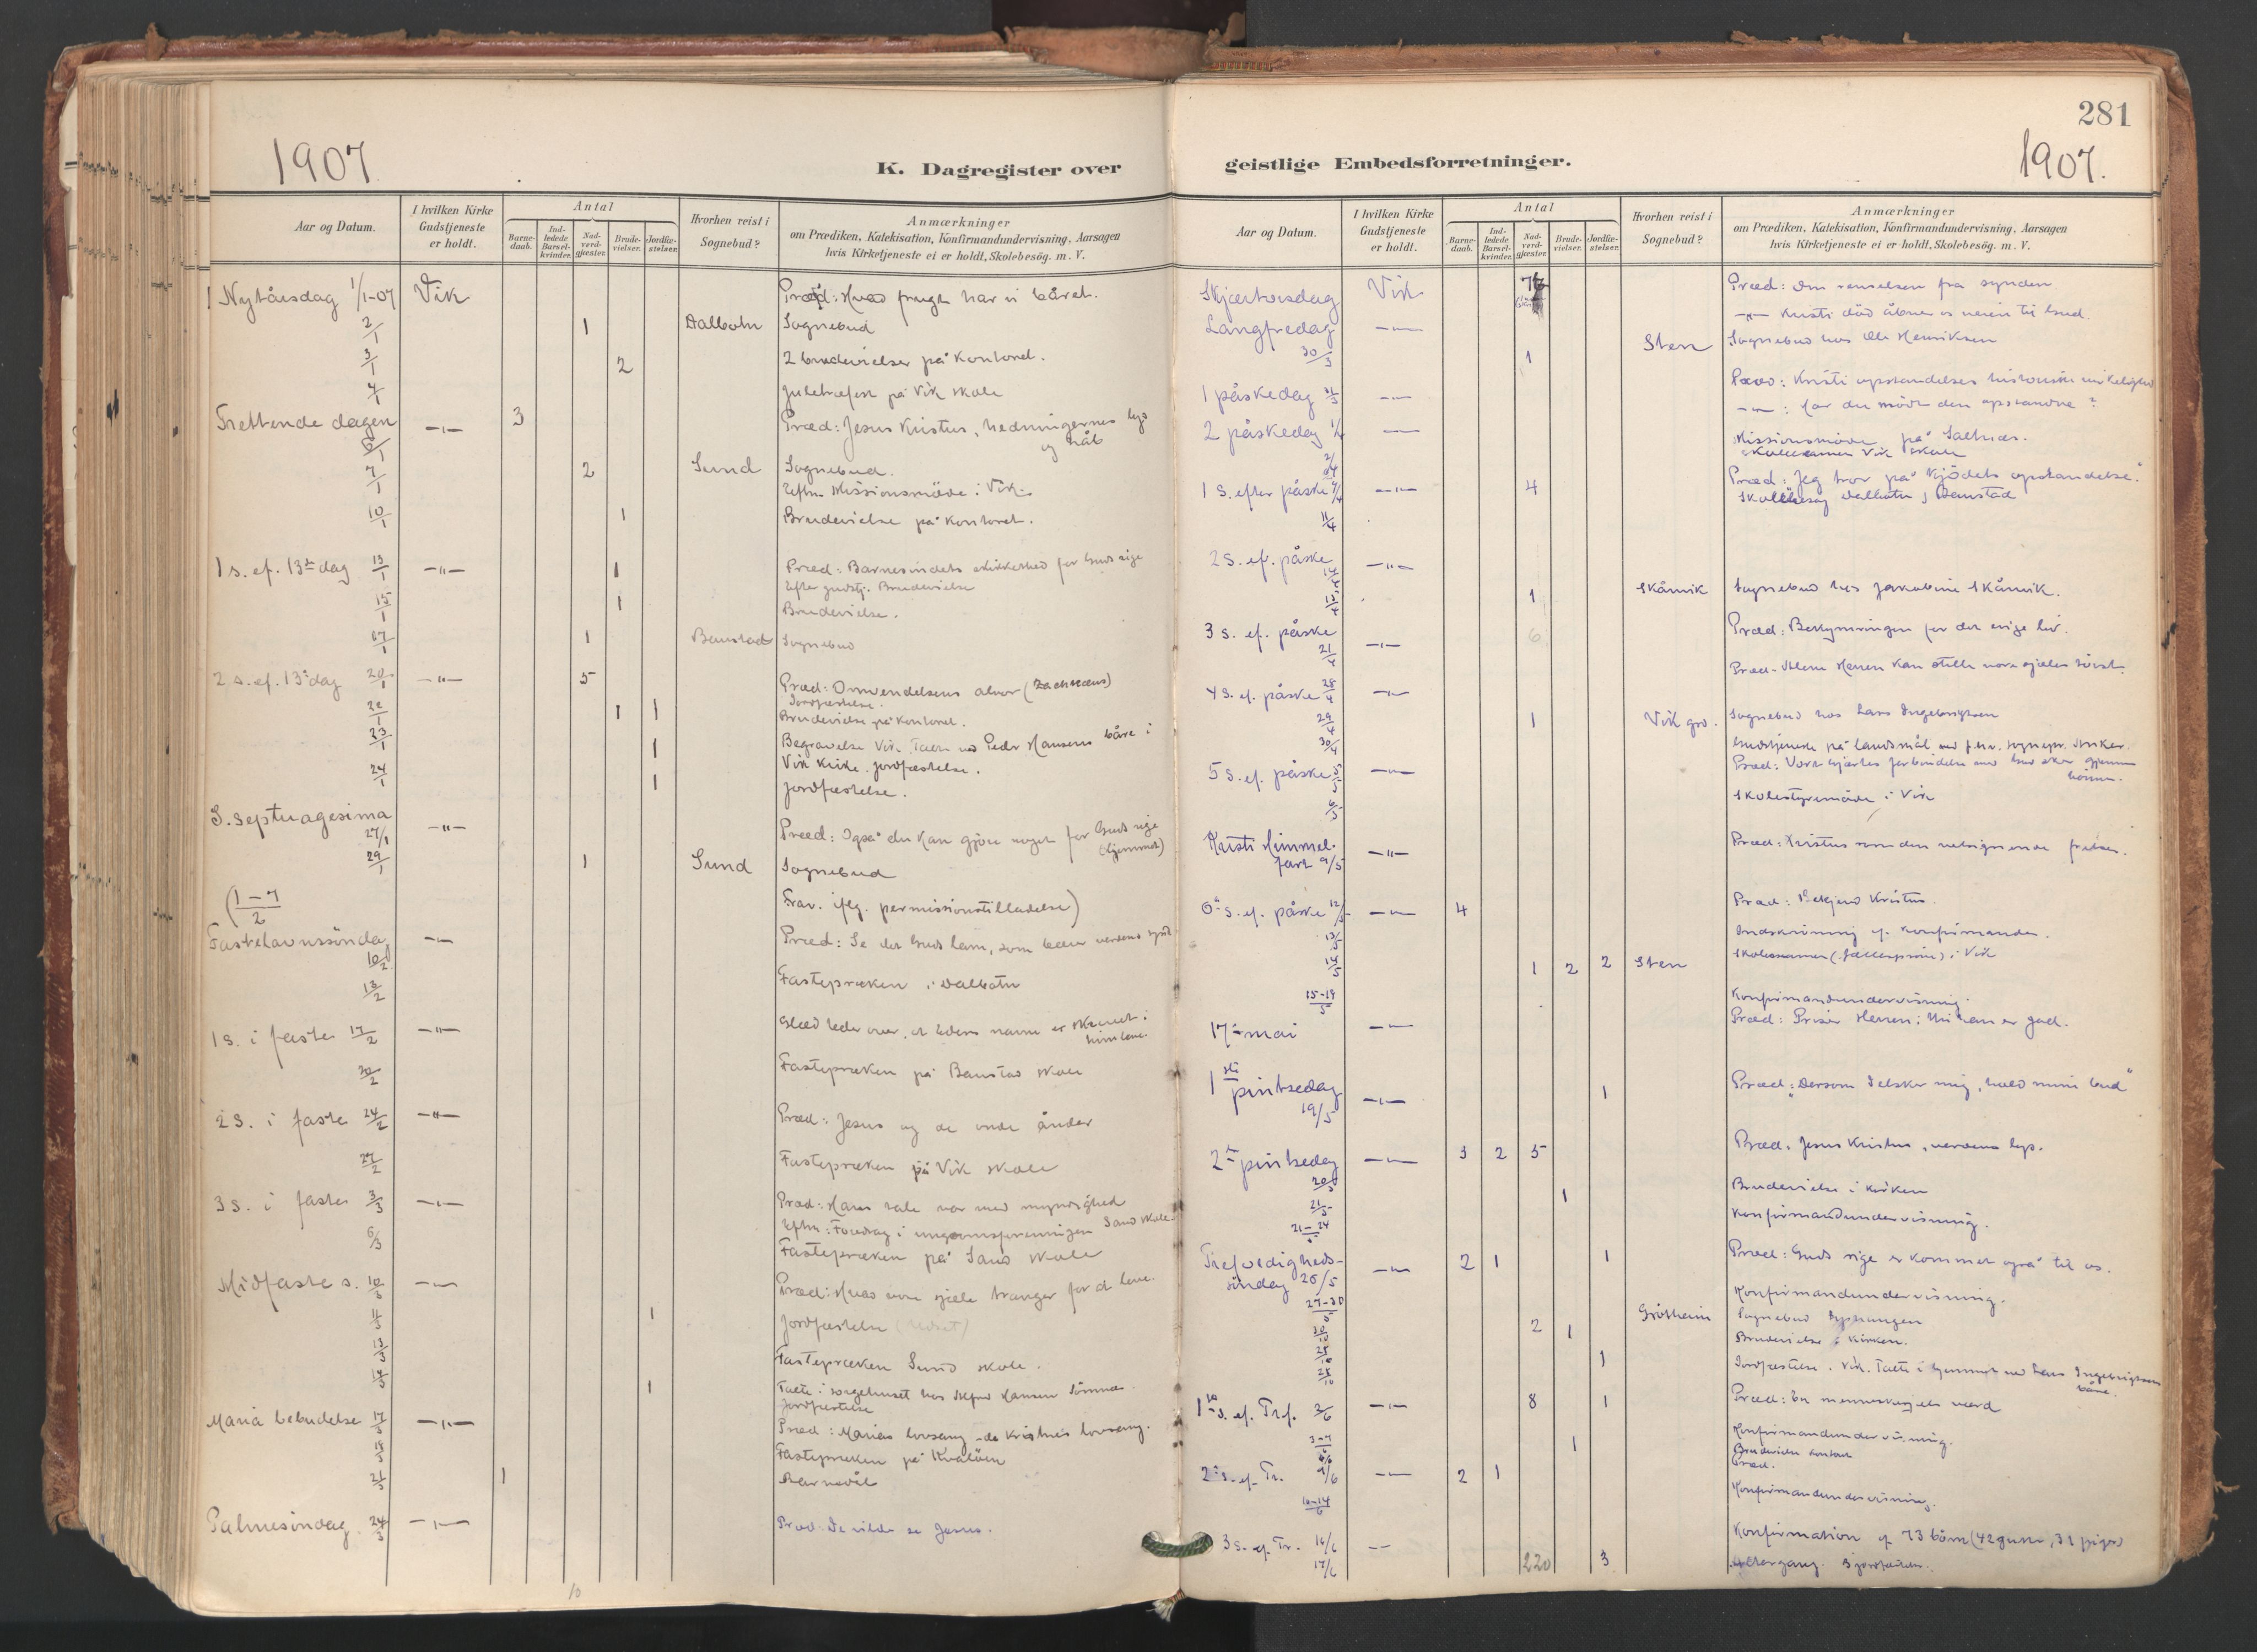 1907
K. Dagregister over
Aar og Datum.
I hvilken Kirke Gudstjeneste er holdt.
Antal
Barne-daab.
Ind-ledede Barsel-kvinder.
Nad-verd-gjæster.
Brude-vielser.
Jordfæ-stelser.
Hvorhen reist i Sognebud?
Anmærkninger
om Prædiken, Katekisation, Konfirmandundervisning, Aarsagen
hvis Kirketjeneste ei er holdt, Skolebesög. m. V.
Nytårsdag 1/1-07 Vik Præd: Hvad frugt har vi båret.
2/1 1 Dalbotn Sognebud
3/1 2 2 brudevielser på Kontoret.
4/1 Juletræfest på Vik skole
Trettende dagen 6/1 —"— 3 Præd: Jesus Kristus, hedningernes lys
og håb
7/1 2 Sund Sognebud.
Eftm. Missionsmöde i Vik
10/1 1 Brudevielse på Kontoret.
1 s. ef. 13de dag 13/1 —"— 1 Præd: Barnesindets skikkethed for Guds rige
Efter gudstj. Brudevielse
15/1 1 Brudevielse.
17/1 1 Baustad Sognebud
2 s. ef. 13de dag 20/1 —"— 5 Præd: Omvendelsens alvor (Zachæus)
Jordfæstelse.
22/1 1 1 Brudevielse på Kontoret.
23/1 1 Begravelse Vik. Tale ved Peder Hansens båre i
Vik Kirke. Jordfæstelse.
24/1 1 Jordfæstelse.
S. Septuagesima 27/1 —"— Præd: Også du kan gjöre noget for Guds rige
(hjemmet)
29/1 1 Sund Sognebud
(1-7/2 Frav. iflg. permissionstilladelse)
Fastelavnssöndag 10/2 —"— Præd: Se det Guds lam, som bærer verdens synd
13/2 Fastepræken i Dalbotn
1 s. i faste 17/2 —"— Glæd eder over, at eders navne er skrevet i
himlene.
20/2 Fastepræken på Baustad skole
2 S. i faste 24/2 —"— Præd: Jesus og de onde ånder
27/2 Fastepræken på Vik skole
3 s. i faste 3/3 —"— Præd: Hans tale var med myndighed
Eftm: Foredrag i ungdomsforeningen Sand skole
6/3 Fastepræken på Sand skole
Midfaste s. 10/3 —"— Præd: Hvad vore sjæle trænger for at leve.
11/3 1 Jordfæstelse
13/3 Fastepræken Sund skole.
14/3 1 Tale i sorgehuset hos
Jordfæstelse
Maria bebudelse 17/3 —"— Præd: Marias lovsang - de kristnes lovsang.
18/3 Fastepræken på Kvalöen
21/3 1 Barnedåb
Palmesöndag 24/3 —"— Præd: De vilde se Jesus.
10
281
1907.
geistlige Embedsforretninger.
Aar og Datum.
I hvilken Kirke Gudstjeneste er holdt.
Antal
Barne-daab.
Ind-ledede Barsel-kvinder.
Nad-verd-gjæster.
Brude-vielser.
Jordfæ-stelser.
Hvorhen reist i Sognebud?
Anmærkninger
om Prædiken, Katekisation, Konfirmandundervisning. Aarsagen
hvis Kirketjeneste ei er holdt, Skolebesög. m. V.
Skjærtorsdag Vik Præd: Om renselsen fra synden
Langfredag —"— —"— Kristi död åbner os veien til Gud.
30/3 1 Sten Sognebud hos Ole Henriksen
1 påskedag 31/3 —"— Præd: Kristi opstandelses historiske virkelighed
2 påskedag 1/4 —"— —"—: Har du mödt den opstandne?
Missionsmöde på
Skoleexamen Vik skole
1 S. efter påske 7/4 —"— 4 Præd: Jeg tror på "kjödets opstandelse."
11/4 Skolebesög Dalbotn, Baustad
2 S. ef. påske 14/4 —"—
1 Skårvik Sognebud hos Jakobine Skårvik.
3 s. ef. påske 21/4 —"— 6 Præd: Bekymringen for det evige liv.
4 s. ef. påske 28/4 —"— Præd- Alene Herren kan stille vore sjæles törst.
29/4 1 Vik grd. Sognebud hos Lars Ingebrigtsen
30/4 Gudstjeneste på landsmål ved
5 s. ef. påske 5/5 —"— Præd: Vort hjertes forbindelse med Gud sker gjennem
bönnen.
6/5 Skolestyremöde i Vik
Kristi Himmel-
fart 9/5 —"— Præd: Kristus som den velsignende frelser.
6te s. ef. påske 12/5 —"— 4 Præd: Bekjend Kristus.
13/5 Indskrivning af konfirmander.
14/5 1 2 2 Sten Skoleexamen i Vik
15-19/5 Konfirmandundervisning.
17de mai —"— Præd: Priser Herren; thi han er god.
1ste pintsedag 19/5 —"— 1 Præd: "Dersom I elsker mig, hold mine bud"
2de pintsedag 20/5 —"— 3 2 5 Præd. Jesus Kristus, verdens lys.
21/5 1 Brudevielse i kirken
21-24/5 Konfirmandundervisning.
Trefoldigheds-
söndag 26/5 —"— 2 1 1 Præd: Guds rige er kommet også til os.
27-30/5 Konfirmandundervisning.
2 Gröttheim Sognebud
1 Brudevielse i kirken.
1 Jordfæstelse. Vik. Tale i hjemmet ved Lars Ingebrigtsens
båre.
1ste s. ef. Tref. 2/6 —"— 8 1 Præd: En menneskesjæls værd
3-7/6 Konfirmandundervisning.
1 Brudevielse kontoret
2 s. ef. Tr. 9/6 —"— 2 1 Præd.
10-14/6 Konfirmandundervisning.
3 s. ef. Tr. 16/6 —"— Konfirmation af 73 börn (42 gutter, 31 piger)
17/6 220 3 Altergang. 3 jordfæstelser.